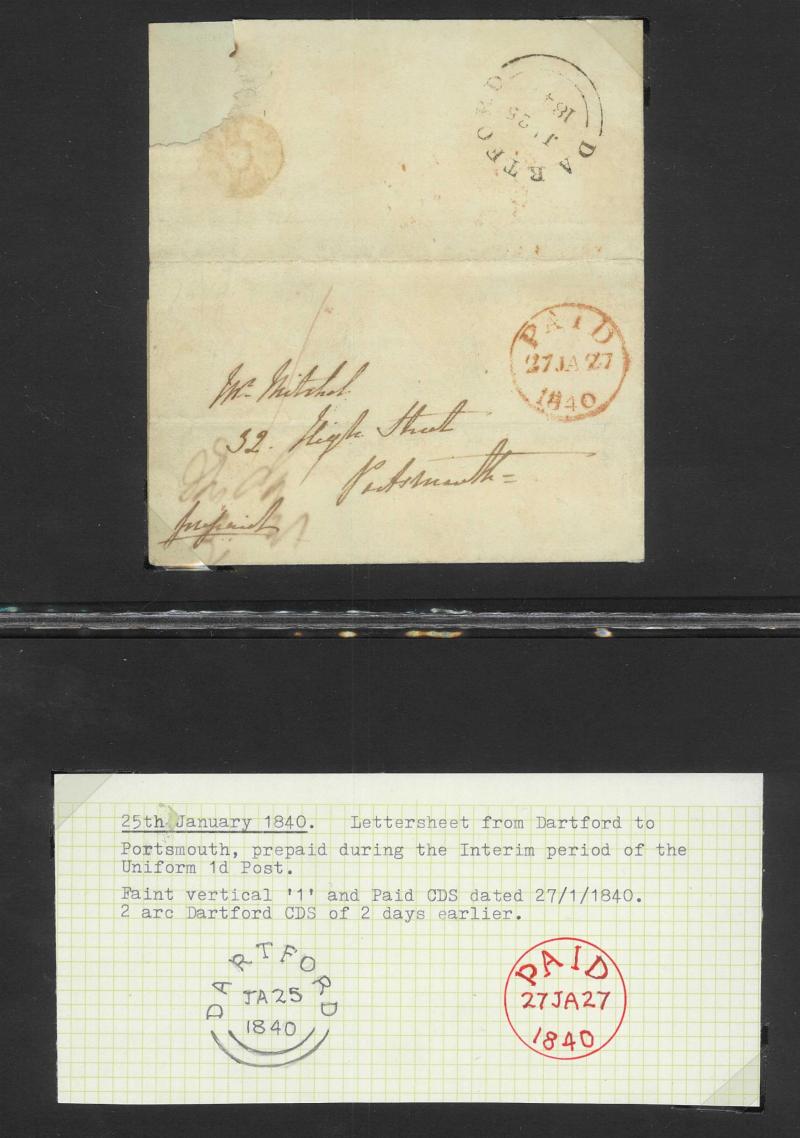 DARTFORD
JA 25
184
PAID
27JA27
1840
Mr. Mitchel
32. High Street
Portsmouth =
prepaid
25th January 1840. Lettersheet from Dartford to
Portsmouth, prepaid during the Interim period of the
Uniform 1d Post.
Faint vertical '1' and Paid CDS dated 27/1/1840.
2 arc Dartford CDS of 2 days earlier.
DARTFORD
JA25
1840
PAID
27JA27
1840